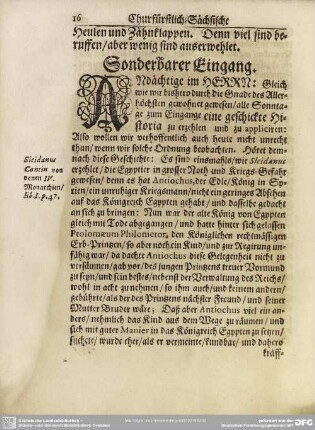 16 Churfürstlich-Sächsische
Heulen und Zähnklappen. Denn viel sind be-
ruffen/ aber wenig sind auserwehlet.
Sonderbarer Eingang.
ANdächtige im HERRN: Gleich
wie wir bißhero durch die Gnade des Aller-
höchsten gewohnt gewesen/ alle Sonnta-
ge zum Eingange eine geschickte Hi-
storia zu erzehlen und zu appliciren:
Also wollen wir verhoffentlich auch heute nicht unrecht
thun/ wenn wir solche Ordnung beobachten. Höret dem-
nach diese Geschichte: Es sind einsmahls/ wie Sleidanus
erzehlet/ die Egyptier in grosser Noth und Kriegs-Gefahr
gewesen/ denn es hat Antiochus, der Edle/ König in Sy-
rien/ ein unruhiger Kriegsmann/ nicht ein geringes Absehen
auf das Königreich Egypten gehabt/ und dasselbe gedacht
an sich zu bringen: Nun war der alte König von Egypten
gleich mit Tode abgegangen/ und hatte hinter sich gelassen
Ptolomæum Philometor, den Königlichen rechtmäßigen
Erb-Printzen/ so aber noch ein Kind/ und zur Regirung un-
fähig war/ da dachte Antiochus diese Gelegenheit nicht zu
versäumen/ gab vor/ des jungen Printzens treuer Vormund
zu seyn/ und sein bestes/ nebenst der Verwaltung des Reichs/
wohl in acht zu nehmen/ so ihm auch/ und keinem andern/
gebührte/ als der des Printzens nächster Freund/ und seiner
Mutter Bruder wäre; Daß aber Antiochus viel ein an-
ders/ nehmlich das Kind aus dem Wege zu räumen/ und
sich mit guter Manier in das Königreich Egypten zu setzen/
suchete/ wurde eher/ als er vermeinte/ kundbar/ und dahero
kräff-
Sleidanus
Contin von
denen IV.
Monarchien/
lib.1. p. 47.